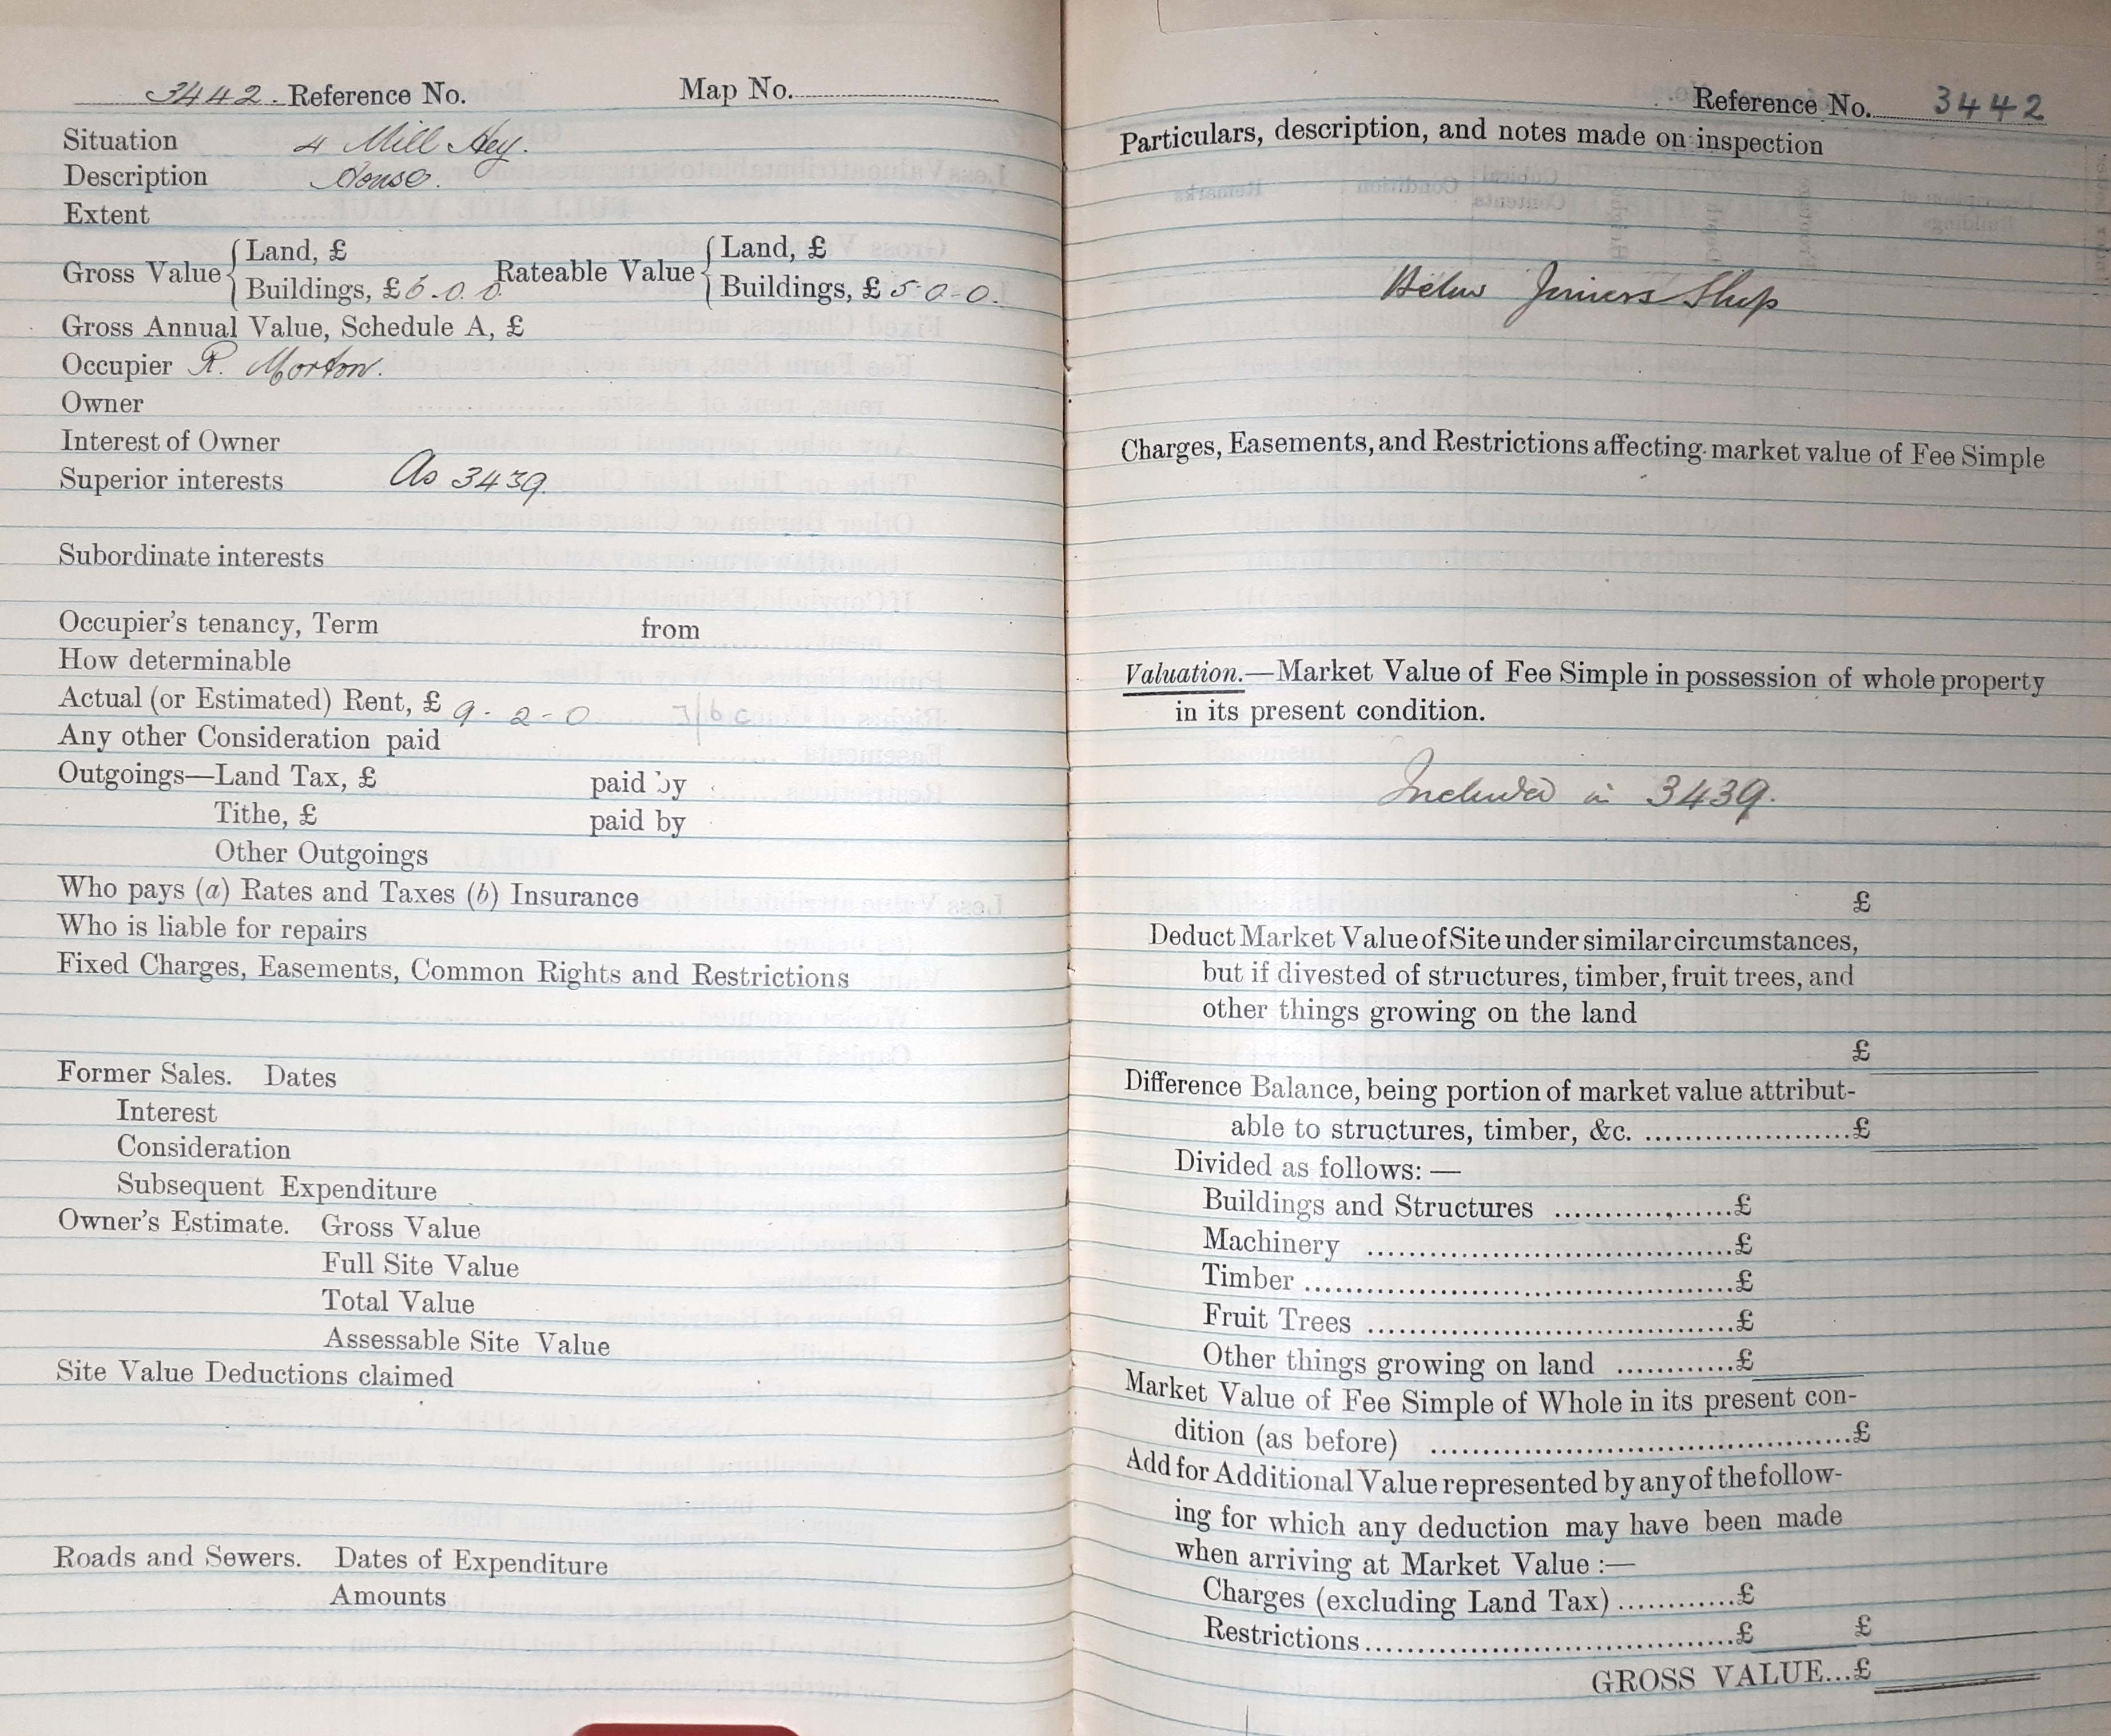 3442. Reference No. Map No.
Situation 4 Mill Hey.
Description House.
Extent
Gross Value { Land, £ Rateable Value { Land, £
Buildings, £ 6-0.0. Buildings, £ 5-0-0.
Gross Annual Value, Schedule A, £
Occupier R. Morton.
Owner
Interest of Owner
Superior interests As 3439.
Subordinate interests
Occupier's tenancy, Term from
How determinable
Actual (or Estimated) Rent, £ 9-2-0
Any other Consideration paid
Outgoings—Land Tax, £ paid by
Tithe, £ paid by
Other Outgoings
Who pays (a) Rates and Taxes (b) Insurance
Who is liable for repairs
Fixed Charges, Easements, Common Rights and Restrictions
Former Sales. Dates
Interest
Consideration
Subsequent Expenditure
Owner's Estimate. Gross Value
Full Site Value
Total Value
Assessable Site Value
Site Value Deductions claimed
Roads and Sewers. Dates of Expenditure
Amounts
Reference No. 3442
Particulars, description, and notes made on inspection
Below Joiners Shop
Charges, Easements, and Restrictions affecting market value of Fee Simple
Valuation.—Market Value of Fee Simple in possession of whole property
in its present condition.
Included in 3439.
£
Deduct Market Value of Site under similar circumstances,
but if divested of structures, timber, fruit trees, and
other things growing on the land
£
Difference Balance, being portion of market value attribut-
able to structures, timber, &c. ......................£
Divided as follows:—
Buildings and Structures ...................£
Machinery ...................................£
Timber .........................................£
Fruit Trees ...................................£
Other things growing on land ............£
Market Value of Fee Simple of Whole in its present con-
dition (as before) .........................................£
Add for Additional Value represented by any of the follow-
ing for which any deduction may have been made
when arriving at Market Value :—
Charges (excluding Land Tax) ............£
Restrictions ...................................£ £
GROSS VALUE...£